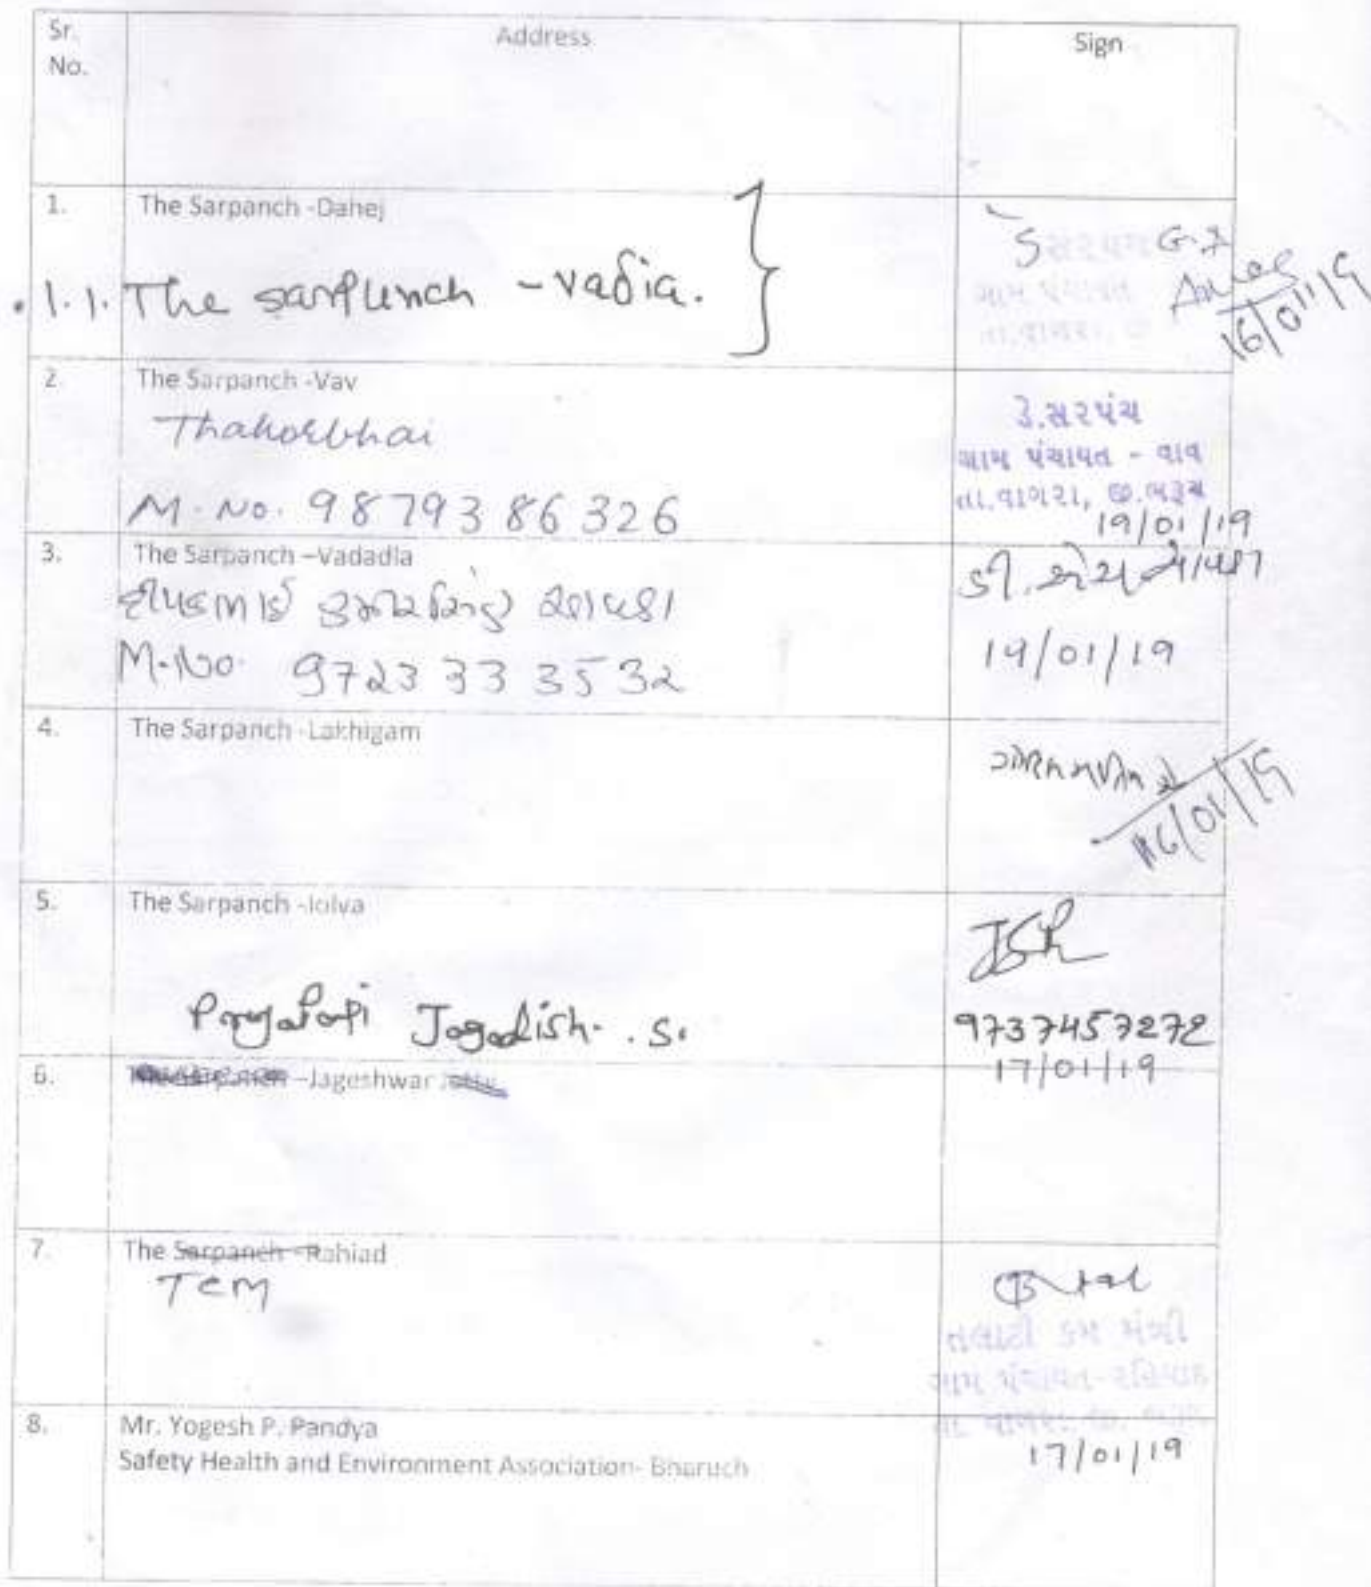 Sr. No.
Address
Sign
1.
The Sarpanch -Dahej
1.1. The sarpunch - vadia.
16/01/19
2.
The Sarpanch -Vav
Thakorbhai
M. No. 9879386326
ડે.સરપંચ
ગ્રામ પંચાયત - વાવ
તા.વાગરા, જી.ભરૂચ
19/01/19
3.
The Sarpanch –Vadadla
M. No. 9723 33 35 32
19/01/19
4.
The Sarpanch -Lakhigam
16/01/19
5.
The Sarpanch -Jolva
Jagadish. S.
9737457272
17/01/19
6.
–Jageshwar
7.
The Sarpanch -Rahiad
TCM
તલાટી કમ મંત્રી
ગ્રામ પંચાયત-રહિયાદ
17/01/19
8.
Mr. Yogesh P. Pandya
Safety Health and Environment Association- Bharuch